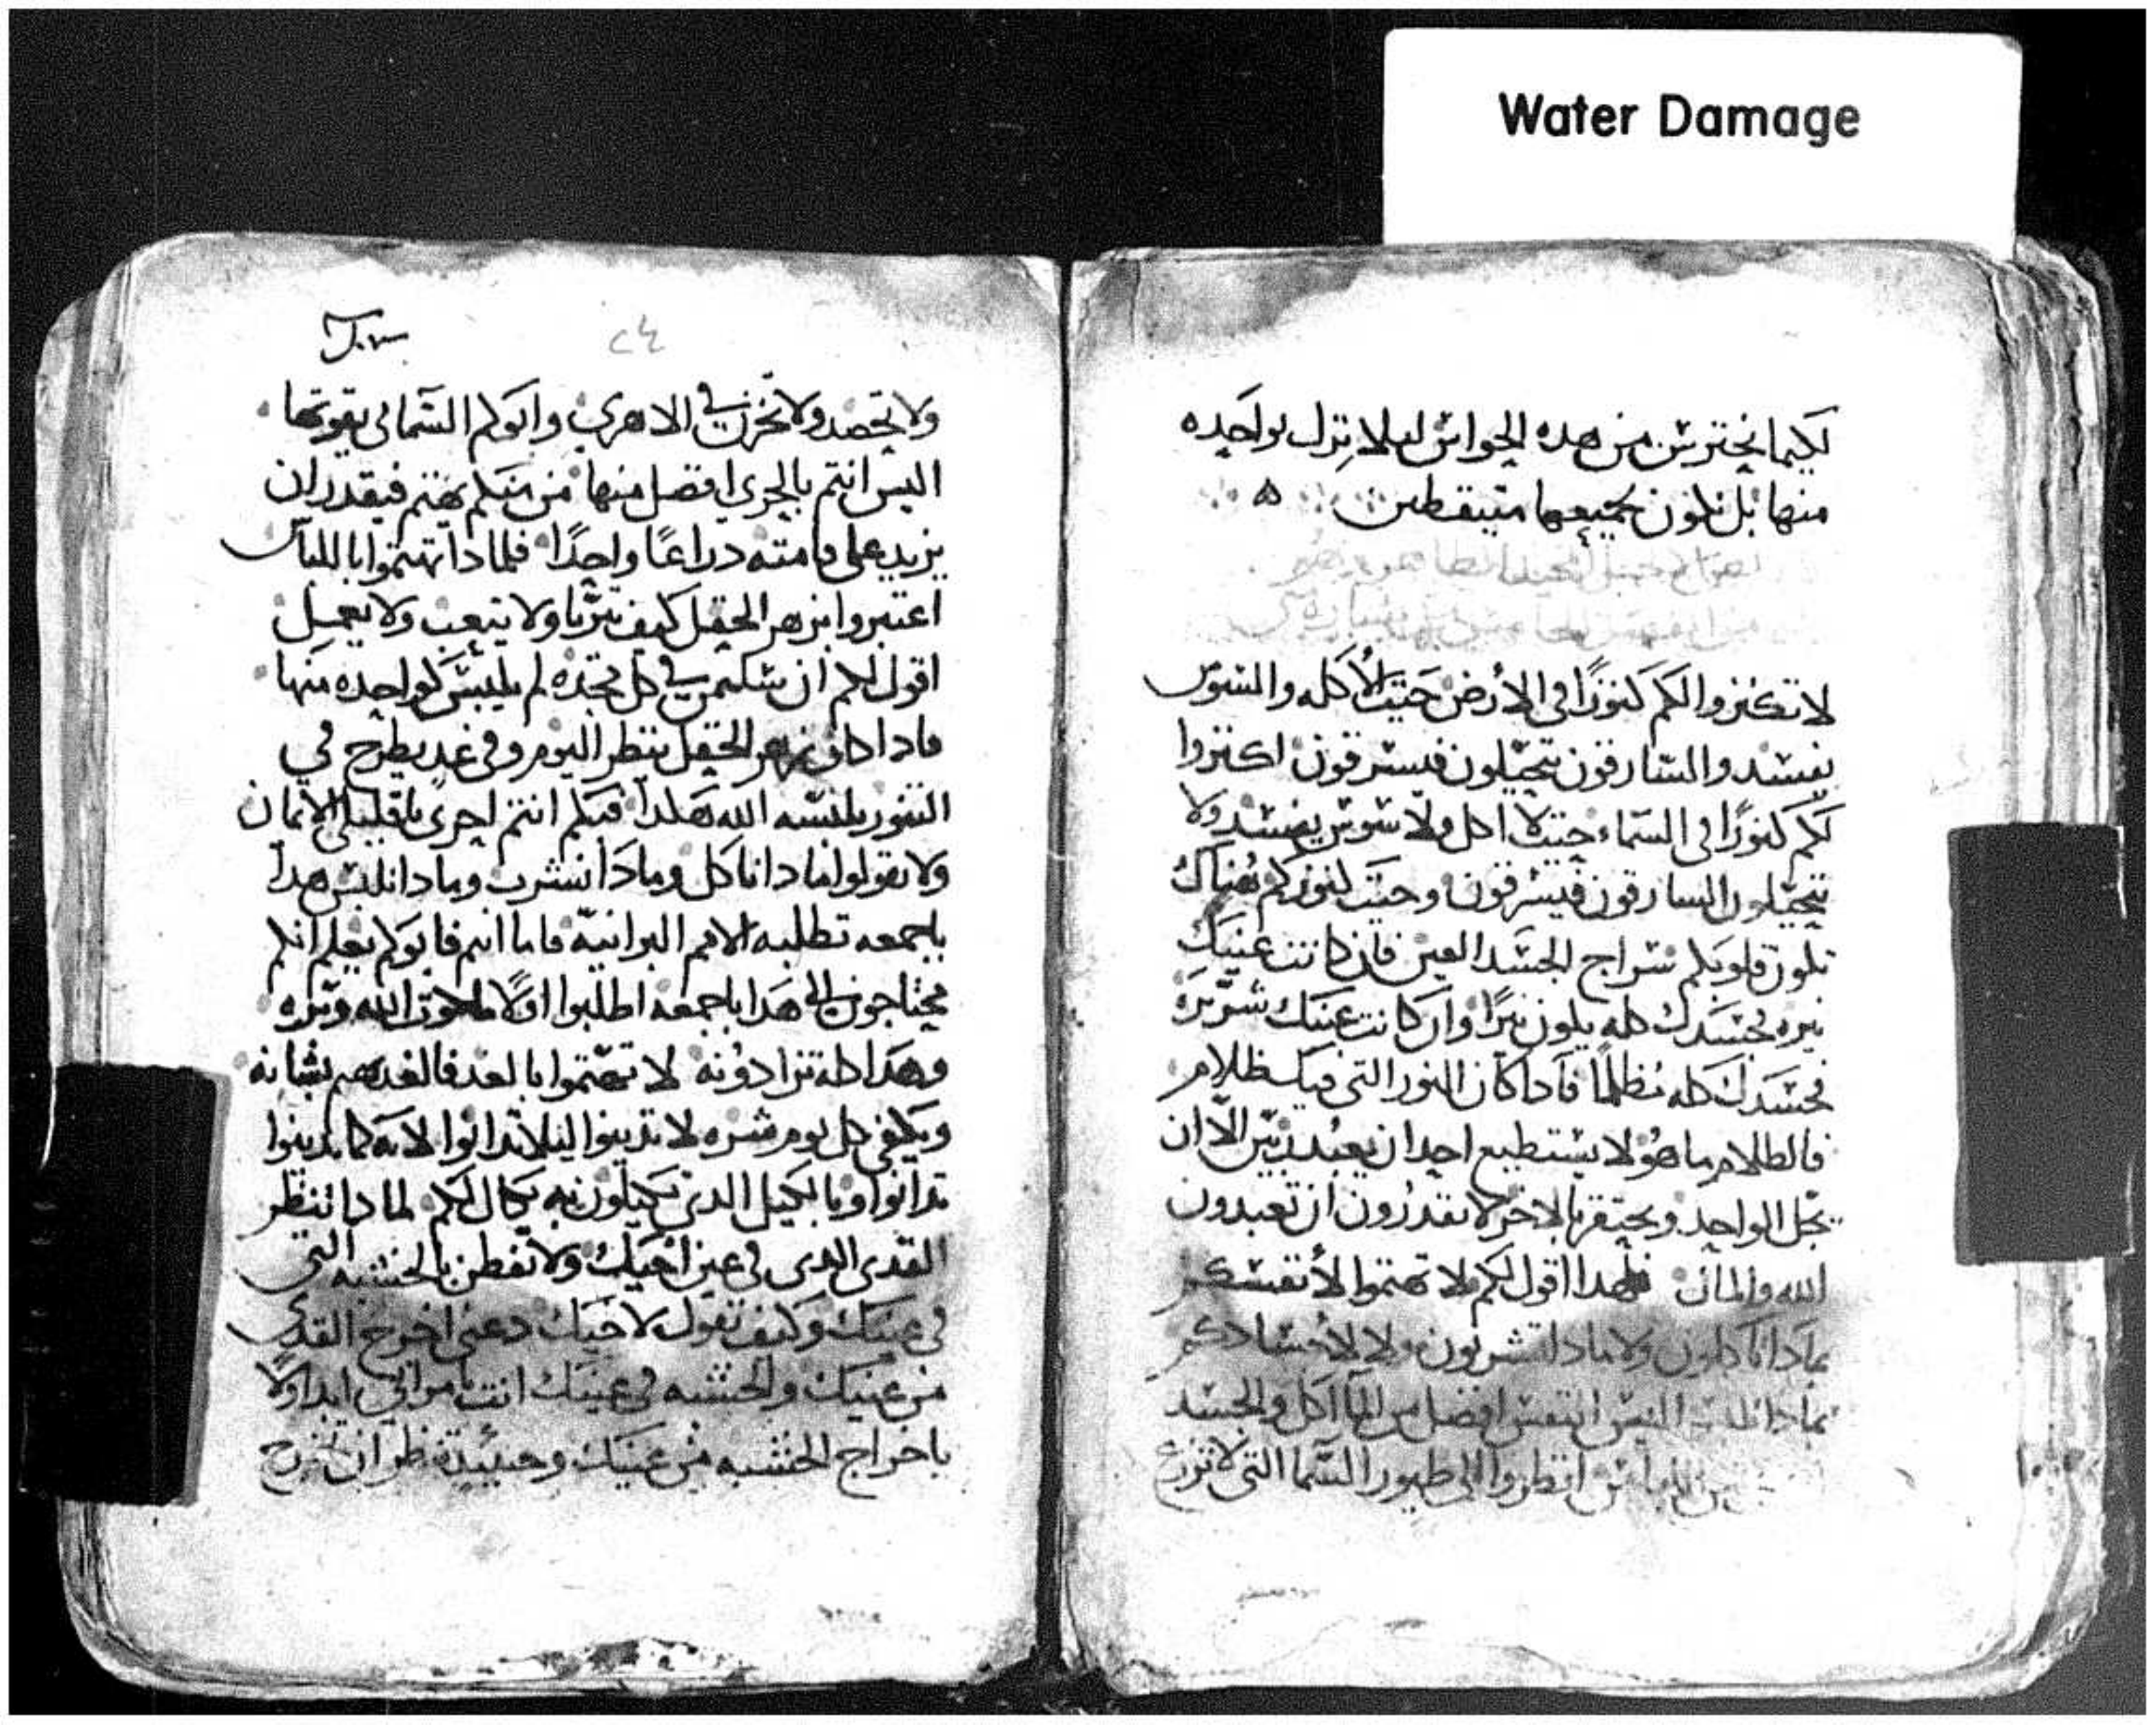 Water Damage
لكيما نحترس من هده الحواس ليلا نزل بواحده
منها بل نكون بجميعها متيقظين
لا تكنزوا لكم كنوزًا فى الارض حيت الاكله والسوس
يفسد والسارقون يتحيلون فيسرقون اكنزوا
لكم كنوزًا فى السماء حيت لا اكل ولا سوس يفسد ولا
يتحيلون السارقون فيسرقون وحيت كنوزكم هناك
تكون قلوبكم سراج الجسد العين فان كانت عينك
نيره فجسدك كله يكون نيرًا وان كانت عينك شريره
فجسدك كله مظلمًا فادا كان النور التى فيك ظلام
فالظلام ما هو لا يستطيع احد ان يعبد ربين الا ان
يجل الواحد ويحتقر بالاخر لا تقدرون ان تعبدون
الله والمال فلهدا اقول لكم لا تهتموا لانفسكم
بمادا تاكلون ولا مادا تشربون ولا لاجسادكم
بمادا تلبس اليس النفس افضل من الماكل والجسد
من اللباس انظروا الى طيور السما التى لا تزرع
٢٤
ولا تحصد ولا تخزن فى الاهرى وابوكم السمائى يقوتها
اليس انتم بالحرى افضل منها من منكم يهتم فيقدر ان
يزيد على قامته دراعًا واحدًا فلمادا تهتموا باللباس
اعتبروا بزهر الحقل كيف تتربا ولا يتعب ولا يعمل
اقول لكم ان سليمن فى كل مجده لم يلبس كواحده منها
فادا كان زهر الحقل ينظر اليوم وفى غد يطرح في
التنور يلبسه الله هكدا فبكم انتم احرى يا قليلى الايمان
ولا تقولوا مادا ناكل ومادا نشرب ومادا نلبس هدا
باجمعه تطلبه الامم البرانيه فاما انتم فابوكم يعلم انكم
محتاجون الى هدا باجمعه اطلبوا اولًا ملكوت الله وبره
وهدا كله تزادونه لا تهتموا بالغد فالغد يهتم بشانه
ويكفى كل يوم شره لا تدينوا ليلا تدانوا لانه كما تدينوا
تدانوا وبالكيل الدى تكيلون به يكال لكم لمادا تنظر
القدى الدى فى عين اخيك ولا تفطن بالخشبه التى
فى عينك وكيف تقول لاخيك دعنى اخرج القدى
من عينك والخشبه فى عينك انت يا مرائى ابدا اولًا
باخراج الخشبه من عينك وحينيد تنظر ان تخرج